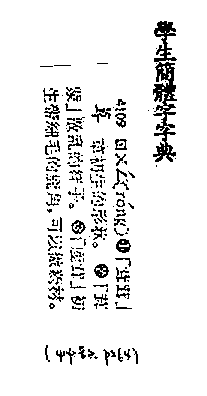 學生簡體字字典
4109 ㄖㄨㄥˊ(róng) ❶「茸茸」
草初生的形狀。❷「
」散亂的樣子。❸「鹿茸」初
生帶細毛的鹿角,可以做藥材。
p264)